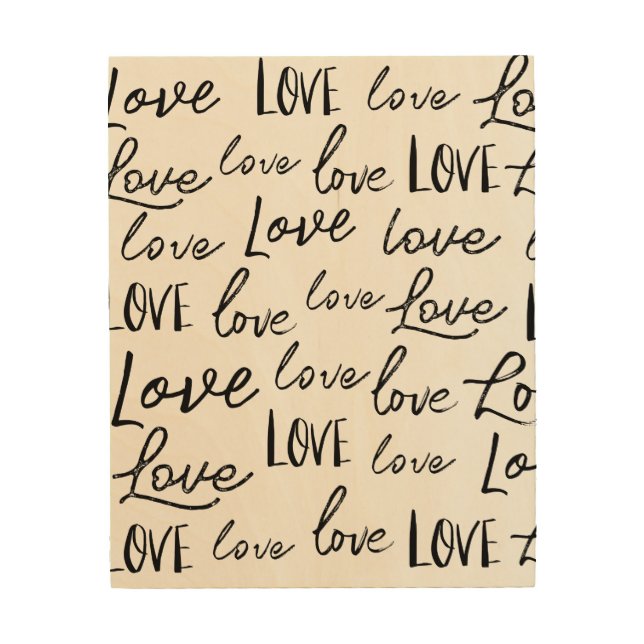 Love LOVE love Lo
Love love love LOVE L
love Love love l
LOVE love love Love L
Love love love Lo
Love LOVE love Lo
LOVE love love LOVE L